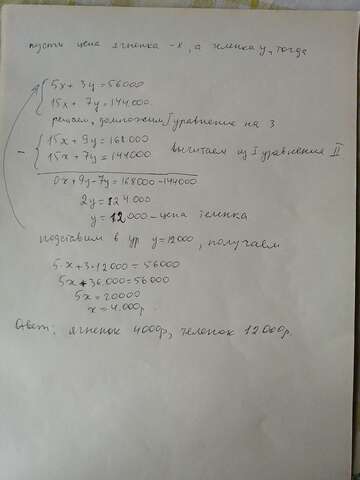 пусть цена ягненка - x, а теленка y, тогда
5x + 3y = 56000
15x + 7y = 144000
решаем, домножим I уравнение на 3
15x + 9y = 168000
15x + 7y = 144000 вычитаем из I уравнения II
0x + 9y - 7y = 168000 - 144000
2y = 24.000
y = 12000 - цена теленка
подставим в ур y = 12000, получаем
5·x + 3·12000 = 56000
5x + 36.000 = 56000
5x = 20000
x = 4.000р.
Ответ: ягненок 4000р, теленок 12000р.